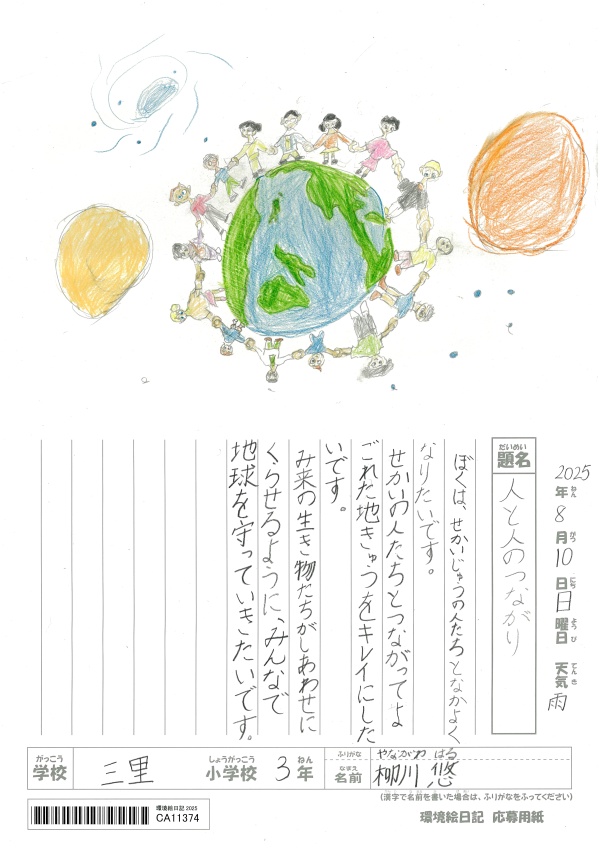 2025年ねん8月がつ10日にち日曜日ようび 天気てんき雨
題名だいめい 人と人のつながり
ぼくは、せかいじゅうの人たちとなかよく
なりたいです。
せかいの人たちとつながってよ
ごれた地きゅうをキレイにした
いです。
み来の生き物たちがしあわせに
くらせるように、みんなで
地球を守っていきたいです。
学校がっこう 三里 小学校しょうがっこう 3年ねん ふりがな やながわ はる 名前なまえ 柳川 悠
(漢字で名前を書いた場合は、ふりがなをふってください)
環境絵日記 2025
CA11374
環境絵日記 応募用紙